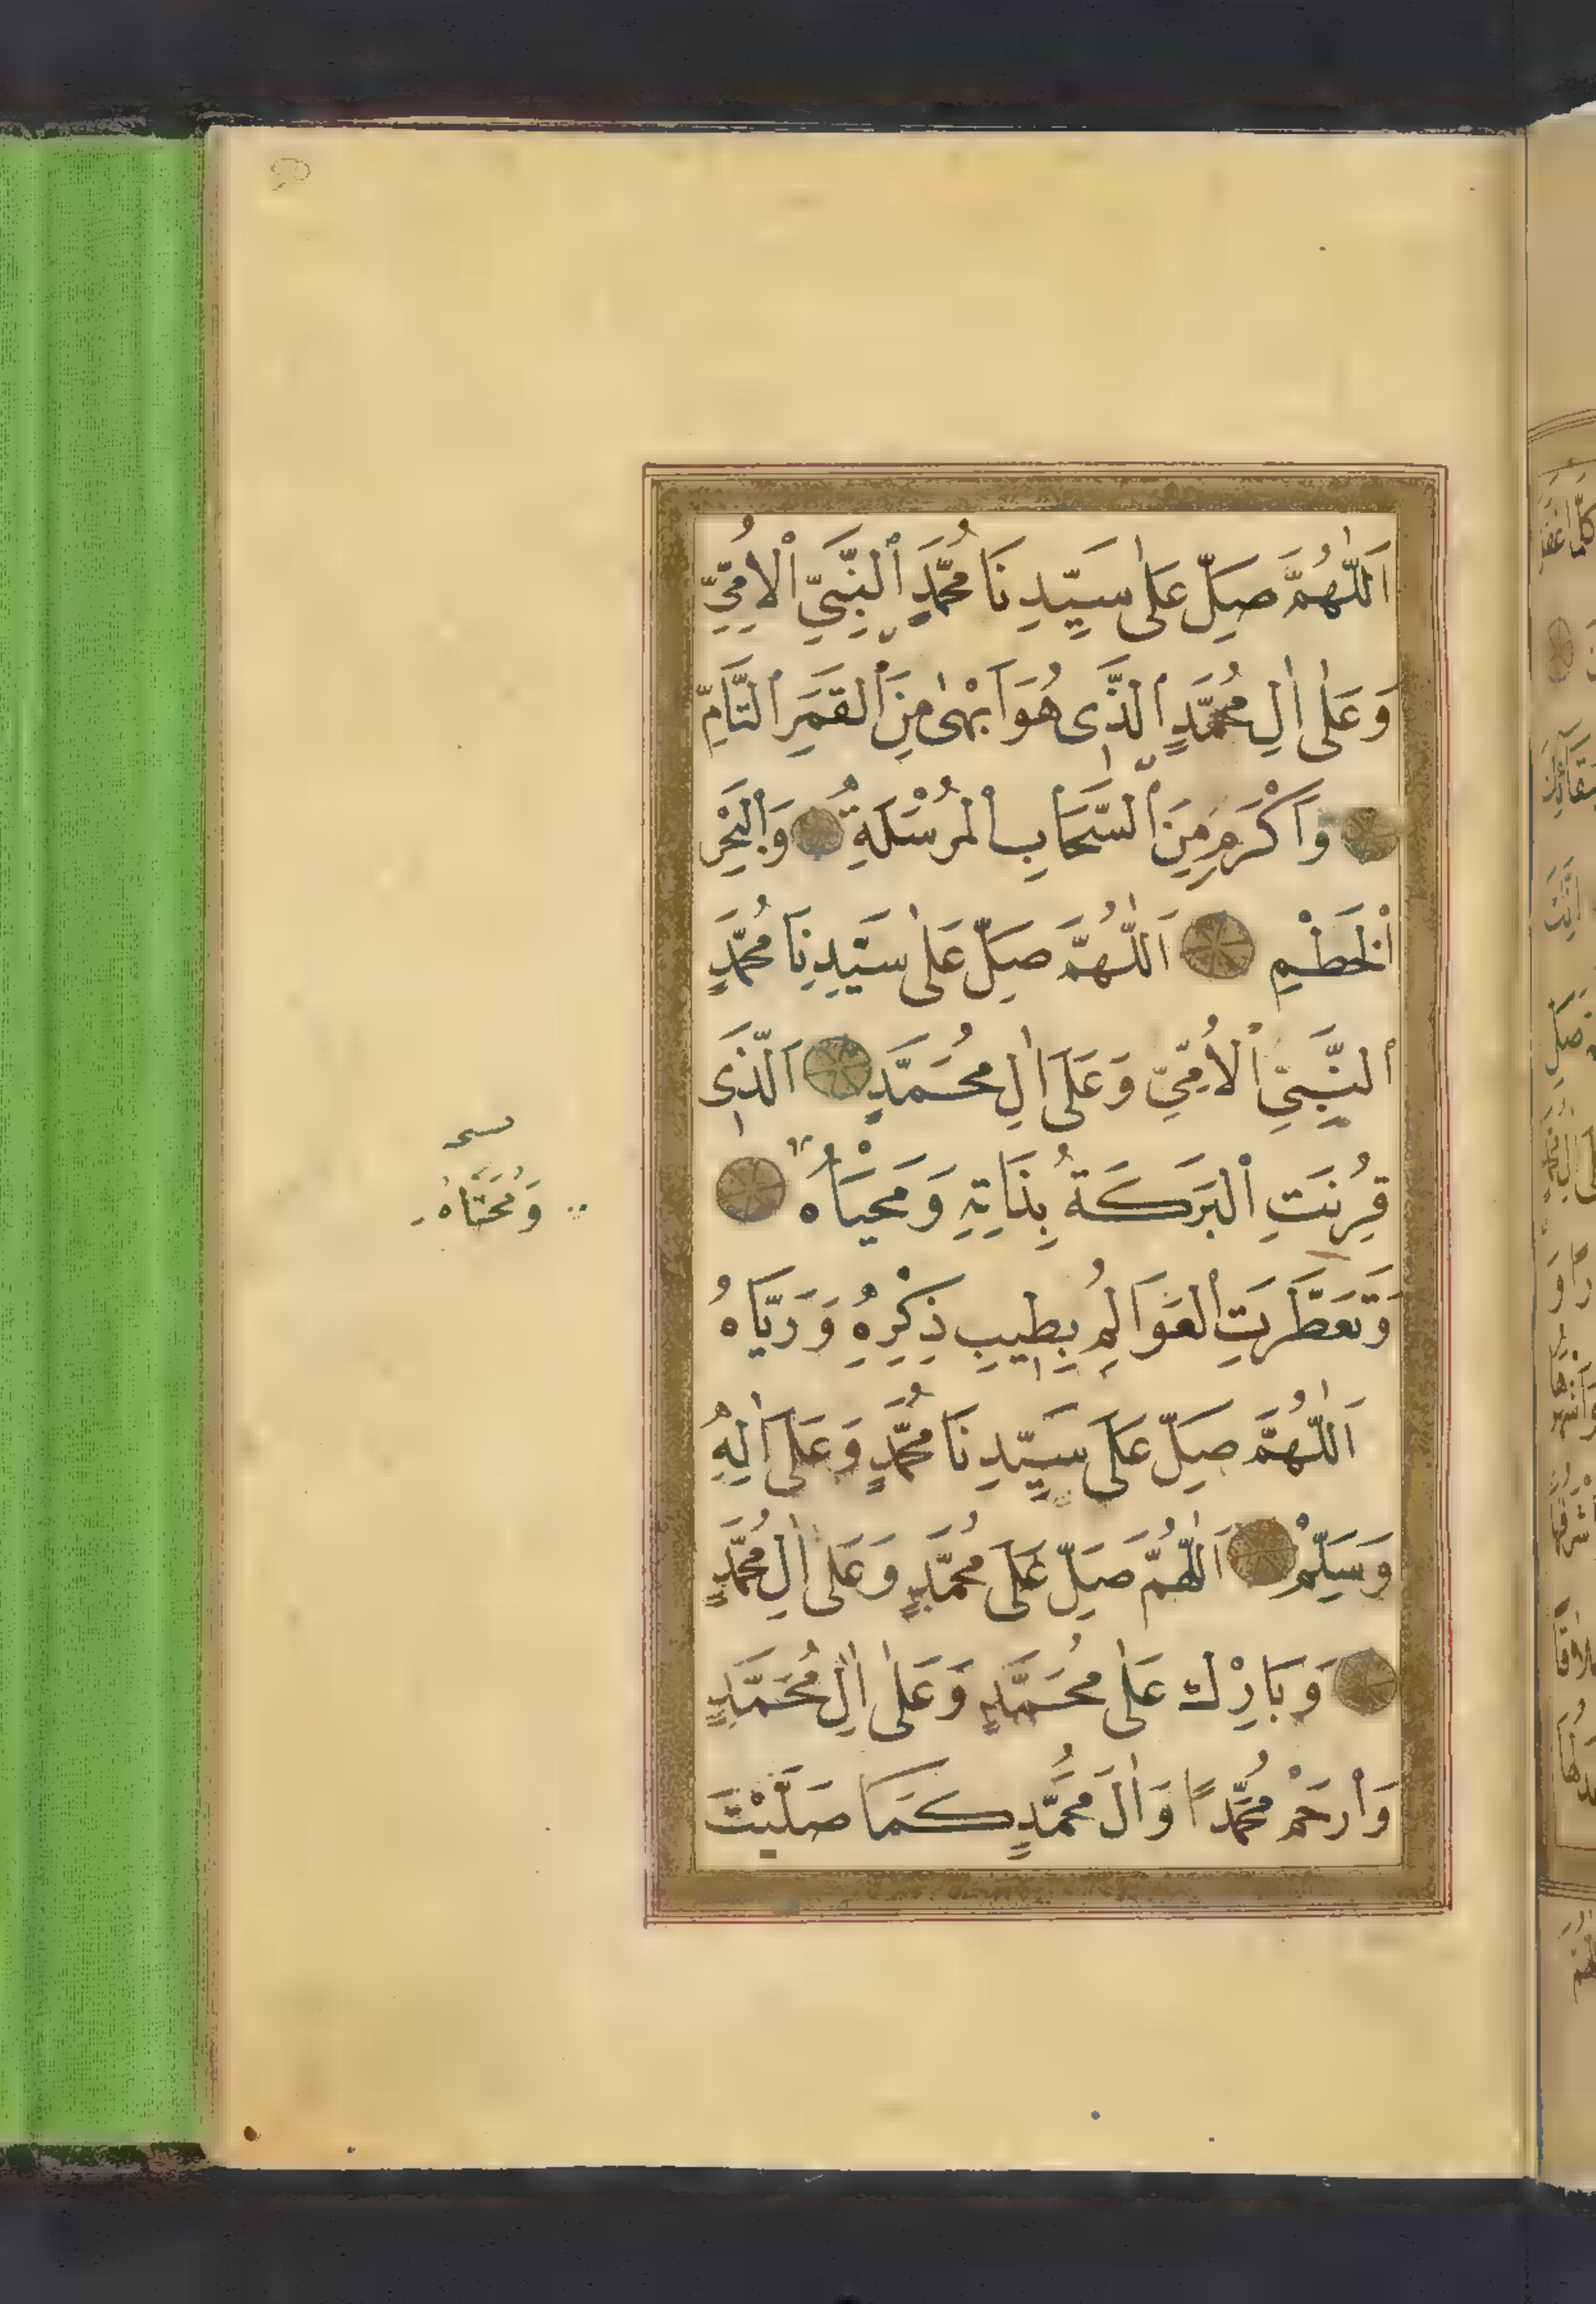 اَللّٰهُمَّ صَلِّ عَلٰى سَيِّدِنَا مُحَمَّدٍ ٱلنَّبِىِّ ٱلْاُمِّىِّ
وَعَلٰى اٰلِ مُحَمَّدٍ ٱلَّذِى هُوَ اَبْهٰى مِنَ ٱلْقَمَرِ ٱلتَّامِّ
وَاَكْرَمُ مِنَ ٱلسَّحَابِ ٱلْمُرْسَلَةِ وَٱلْبَحْرِ
ٱلْخَطْمِ اَللّٰهُمَّ صَلِّ عَلٰى سَيِّدِنَا مُحَمَّدٍ
ٱلنَّبِىِّ ٱلْاُمِّىِّ وَعَلَى اٰلِ مُحَمَّدٍ اَلَّذِى
قُرِنَتِ ٱلْبَرَكَةُ بِذَاتِهِ وَمَحْيَاهُ
وَتَعَطَّرَتِ ٱلْعَوَالِمُ بِطِيبِ ذِكْرِهِ وَرَيَّاهُ
اَللّٰهُمَّ صَلِّ عَلَى سَيِّدِنَا مُحَمَّدٍ وَعَلَى اٰلِهِ
وَسَلِّمْ اَللّٰهُمَّ صَلِّ عَلَى مُحَمَّدٍ وَعَلٰى اٰلِ مُحَمَّدٍ
وَبَارِكْ عَلٰى مُحَمَّدٍ وَعَلٰى اٰلِ مُحَمَّدٍ
وَٱرْحَمْ مُحَمَّدًا وَاٰلَ مُحَمَّدٍ كَمَا صَلَّيْتَ